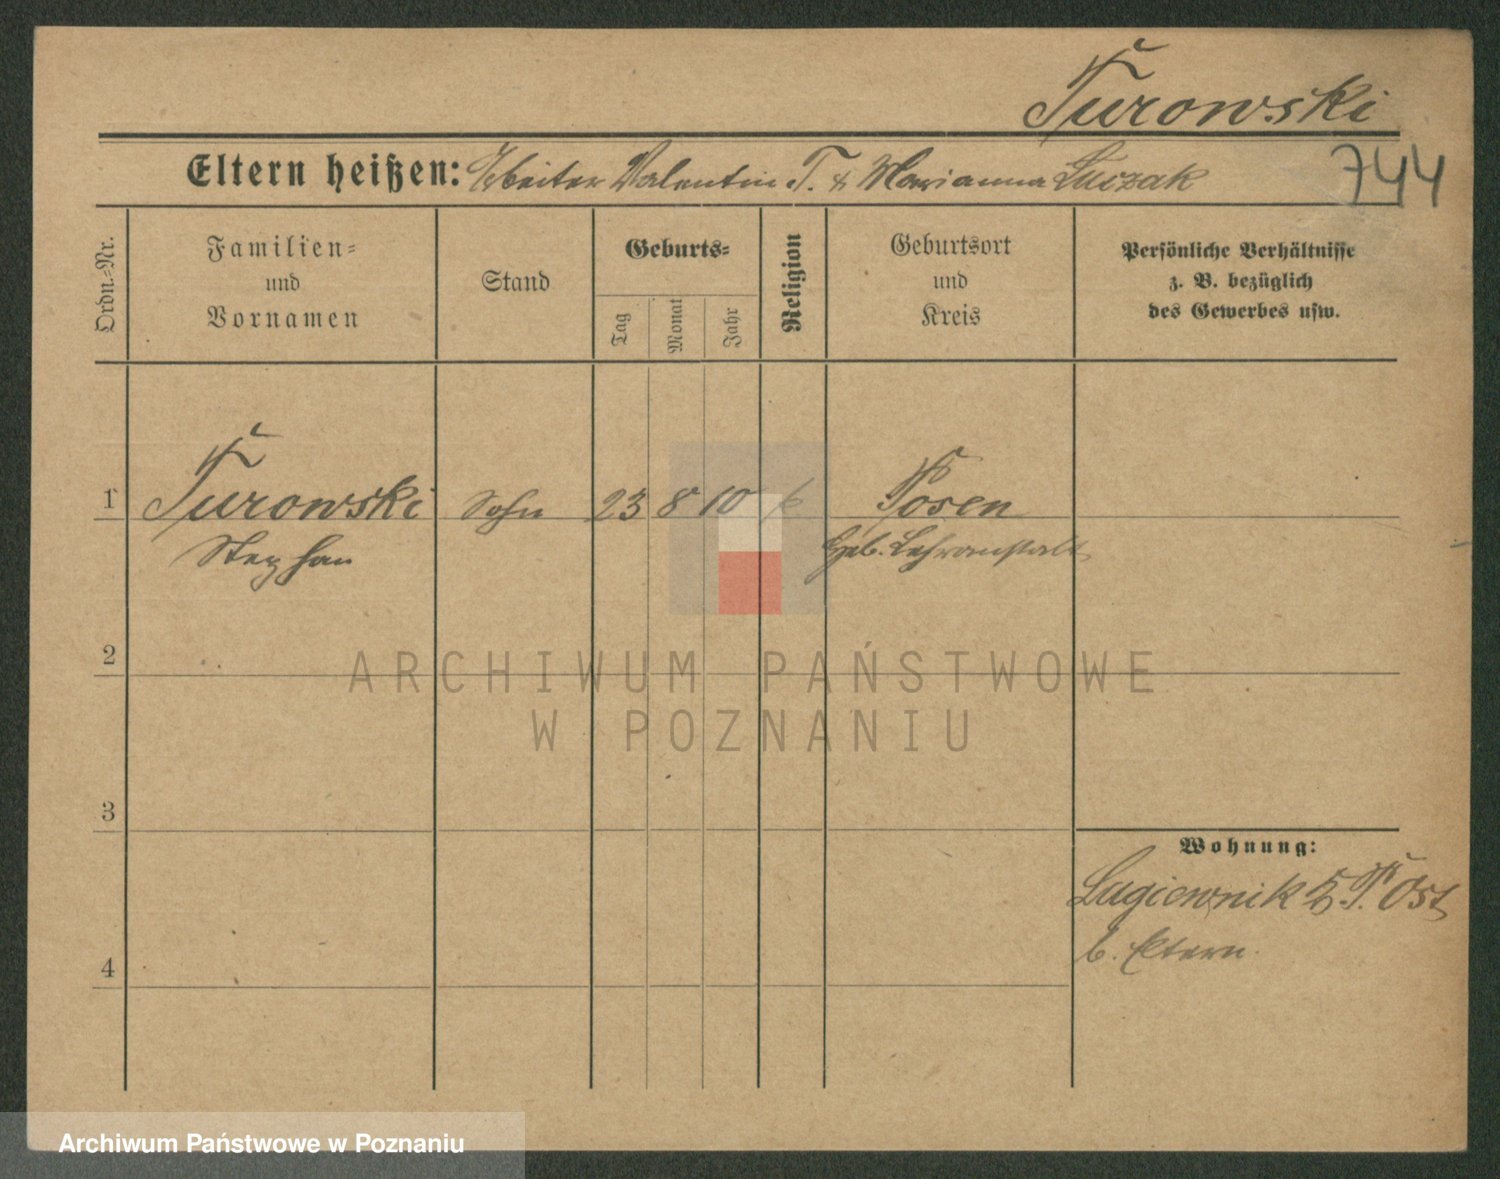 Turowski
Eltern heißen: Arbeiter Valentin T. & Marianna Luczak
744
Ordn.-Nr.
Familien-
und
Vornamen
Stand
Geburts-
Tag
Monat
Jahr
Religion
Geburtsort
und
Kreis
Persönliche Verhältnisse
z. B. bezüglich
des Gewerbes usw.
1 Turowski Sohn 23 8 10 k Posen
Stephan Heb. Lehranstalt
2
ARCHIWUM PAŃSTWOWE
W POZNANIU
3
Wohnung:
Lagiewnik P. Ost
b. Eltern.
4
Archiwum Państwowe w Poznaniu